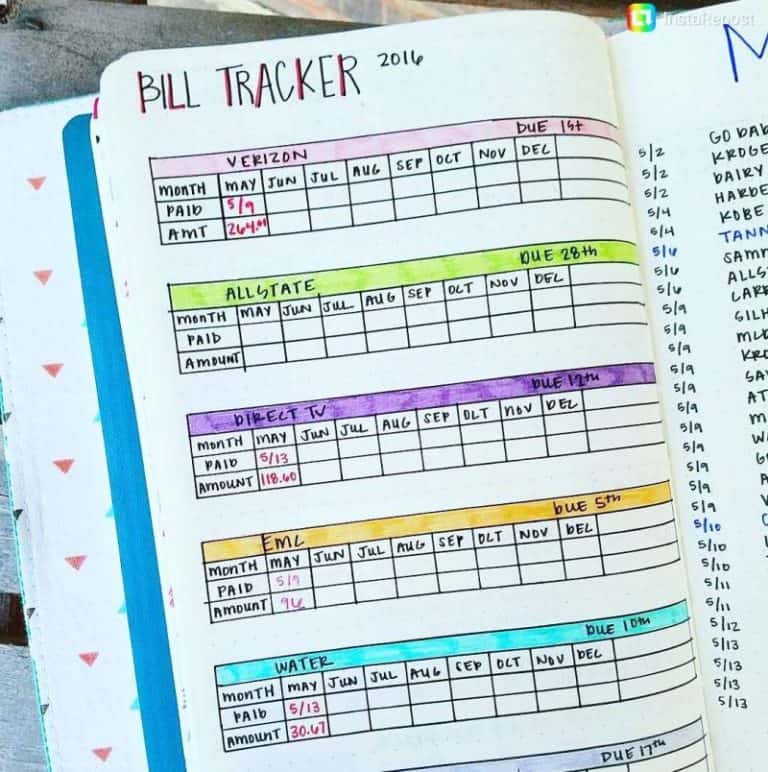 InstaRepost
BILL TRACKER 2016
VERIZON DUE 1st
MONTH MAY JUN JUL AUG SEP OCT NOV DEC
PAID 5/9
AMT
ALLSTATE DUE 28th
MONTH MAY JUN JUL AUG SEP OCT NOV DEC
PAID
AMOUNT
DIRECT TV DUE 12th
MONTH MAY JUN JUL AUG SEP OCT NOV DEC
PAID 5/13
AMOUNT 118.60
EMC DUE 5th
MONTH MAY JUN JUL AUG SEP OCT NOV DEC
PAID 5/9
AMOUNT 96
WATER DUE 10th
MONTH MAY JUN JUL AUG SEP OCT NOV DEC
PAID 5/13
AMOUNT 30.67
DUE 17th
M
5/2 GO
5/2 KROGE
5/2 DAIRY
5/4 HARDE
5/4 KOBE
5/6 TANN
5/6 SAMM
5/6 ALLS
5/9
5/9 GILH
5/9
5/9 KRO
5/9 SA
5/9 AT
5/9 M
5/9 W
5/9
5/9
5/10
5/10
5/10
5/11
5/11
5/12
5/13
5/13
5/13
5/13